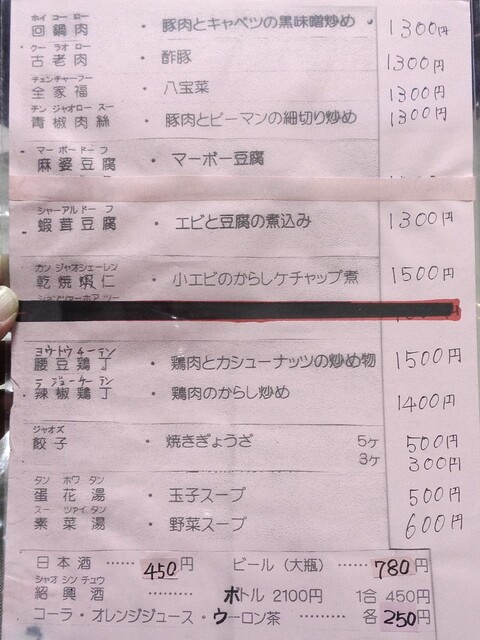 ホイ コー ロー
回鍋肉 ・ 豚肉とキャベツの黒味噌炒め 1300円
クー ラオ ロー
古老肉 ・ 酢豚 1300円
チュンチャーフー
全家福 ・ 八宝菜 1300円
チン ジャオロー スー
青椒肉絲 ・ 豚肉とピーマンの細切り炒め 1300円
マー ボー ドー フ
麻婆豆腐 ・ マーボー豆腐
シャーアルドー フ
蝦茸豆腐 ・ エビと豆腐の煮込み 1300円
カン ジャオシェーレン
乾焼蝦仁 ・ 小エビのからしケチャップ煮 1500円
ヨウトウチーテン
腰豆鶏丁 ・ 鶏肉とカシューナッツの炒め物 1500円
ラ ジューチーテン
辣椒鶏丁 ・ 鶏肉のからし炒め 1400円
ジャオズ
餃子 ・ 焼きぎょうざ 5ケ 500円
3ケ 300円
タン ホワ タン
蛋花湯 ・ 玉子スープ 500円
スー ツァイタン
素菜湯 ・ 野菜スープ 600円
日本酒 …… 450円 ビール（大瓶） 780円
シャオ シン チュウ
紹興酒 ……… ボトル 2100円 1合 450円
コーラ・オレンジジュース・ウーロン茶 …… 各 250円